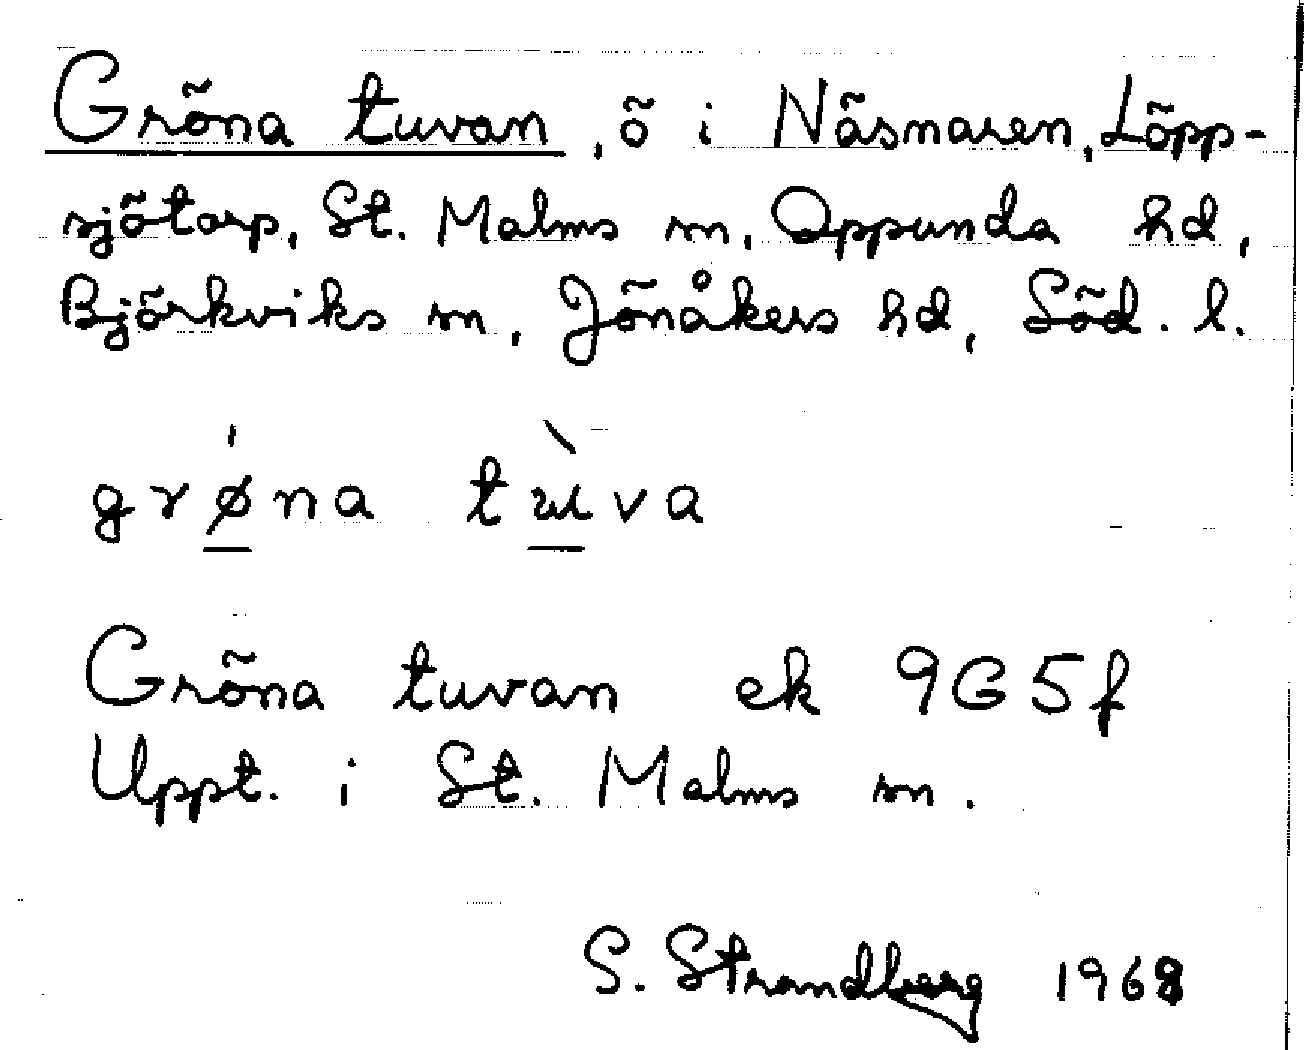 Gröna tuvan, ö i Näsnaren, Löpp-
sjötorp, St. Malms sn, Oppunda hd,
Björkviks sn, Jönåkers hd, Söd. l.
grǿ̲na tɯ̲̀va
Gröna tuvan ek 9G5f
Uppt. i St. Malms sn.
S. Strandberg 1968